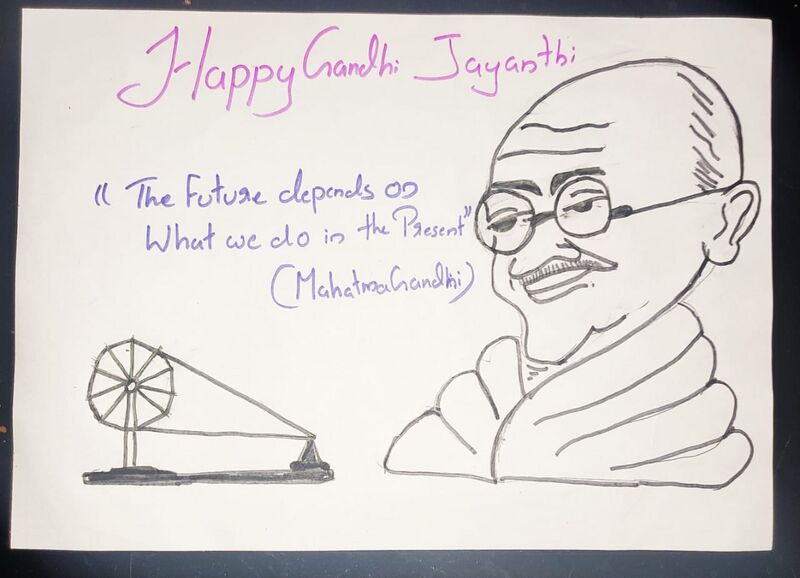 Happy Gandhi Jayanthi
"The Future depends on
What we do in the Present"
(Mahatma Gandhi)